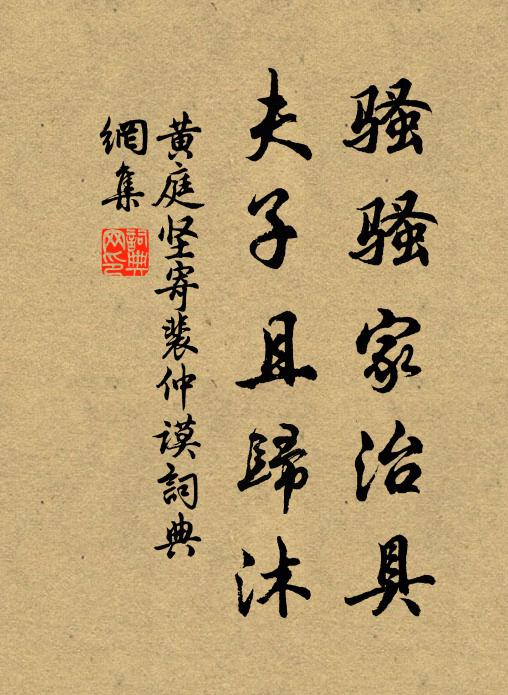 騷騷家治具
夫子且歸沐
黄庭坚寄裴仲謨詞典
網集
詞典
网印